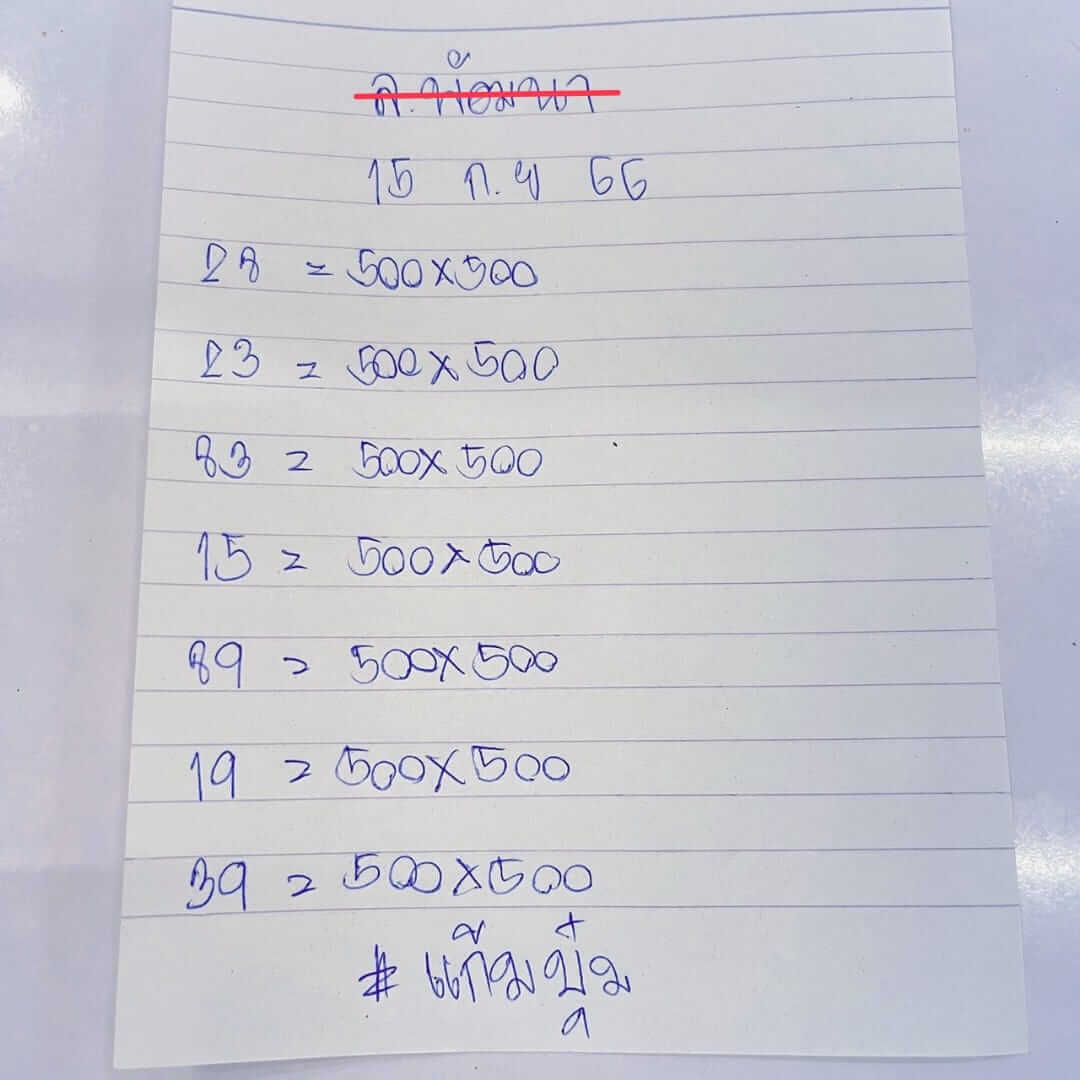 15 ก.ย 66
28 = 500x500
23 = 500x500
83 = 500x500
15 = 500x500
89 = 500x500
19 = 500x500
39 = 500x500
# แก้มบุ๋ม